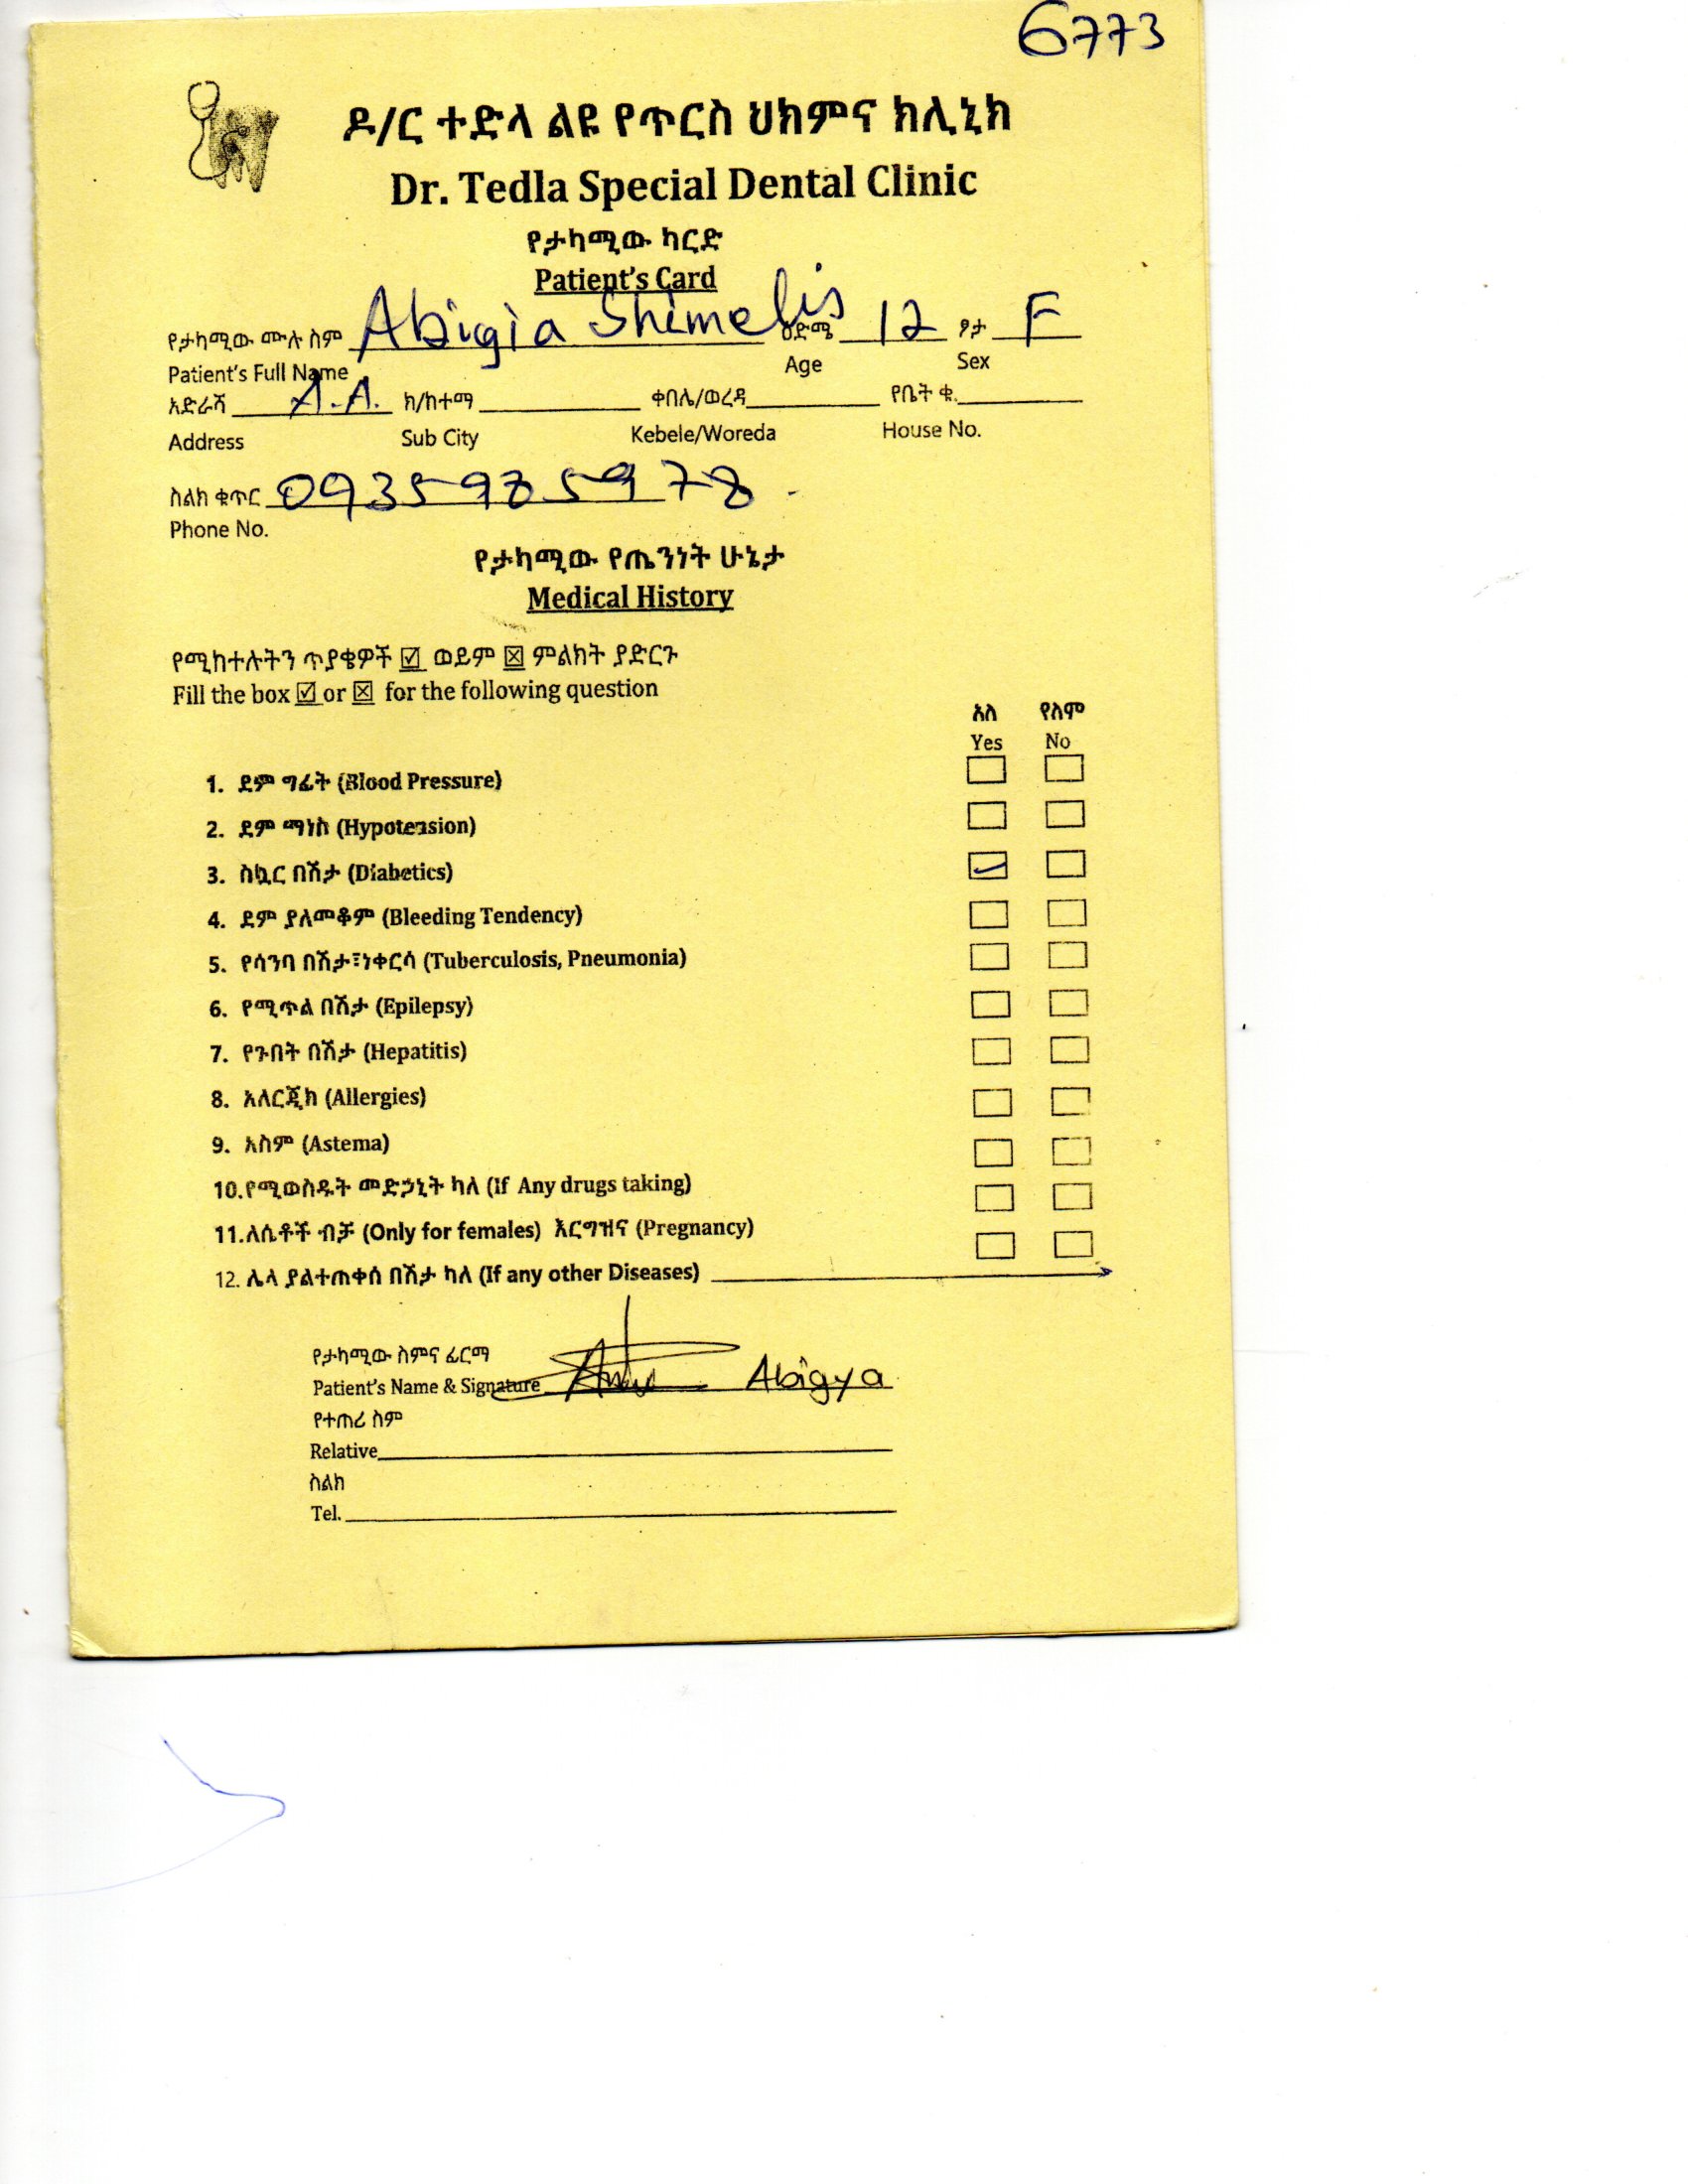 6773
ዶ/ር ተድላ ልዩ የጥርስ ህክምና ክሊኒክ
Dr. Tedla Special Dental Clinic
የታካሚው ካርድ
Patient's Card
የታካሚው ሙሉ ስም Abigia Shimelis ዕድሜ 12 ፆታ F
Patient's Full Name Age Sex
አድራሻ A.A. ክ/ከተማ ቀበሌ/ወረዳ የቤት ቁ.
Address Sub City Kebele/Woreda House No.
ስልክ ቁጥር 0935985978
Phone No.
የታካሚው የጤንነት ሁኔታ
Medical History
የሚከተሉትን ጥያቄዎች ☑ ወይም ☒ ምልክት ያድርጉ
Fill the box ☑ or ☒ for the following question
አለ የለም
Yes No
1. ደም ግፊት (Blood Pressure)
2. ደም ማነስ (Hypotension)
3. ስኳር በሽታ (Diabetics) ✓
4. ደም ያለመቆም (Bleeding Tendency)
5. የሳንባ በሽታ፣ነቀርሳ (Tuberculosis, Pneumonia)
6. የሚጥል በሽታ (Epilepsy)
7. የጉበት በሽታ (Hepatitis)
8. አለርጂክ (Allergies)
9. አስም (Astema)
10.የሚወስዱት መድኃኒት ካለ (If Any drugs taking)
11.ለሴቶች ብቻ (Only for females) እርግዝና (Pregnancy)
12. ሌላ ያልተጠቀሰ በሽታ ካለ (If any other Diseases)
የታካሚው ስምና ፊርማ
Patient's Name & Signature Abigya
የተጠሪ ስም
Relative
ስልክ
Tel.